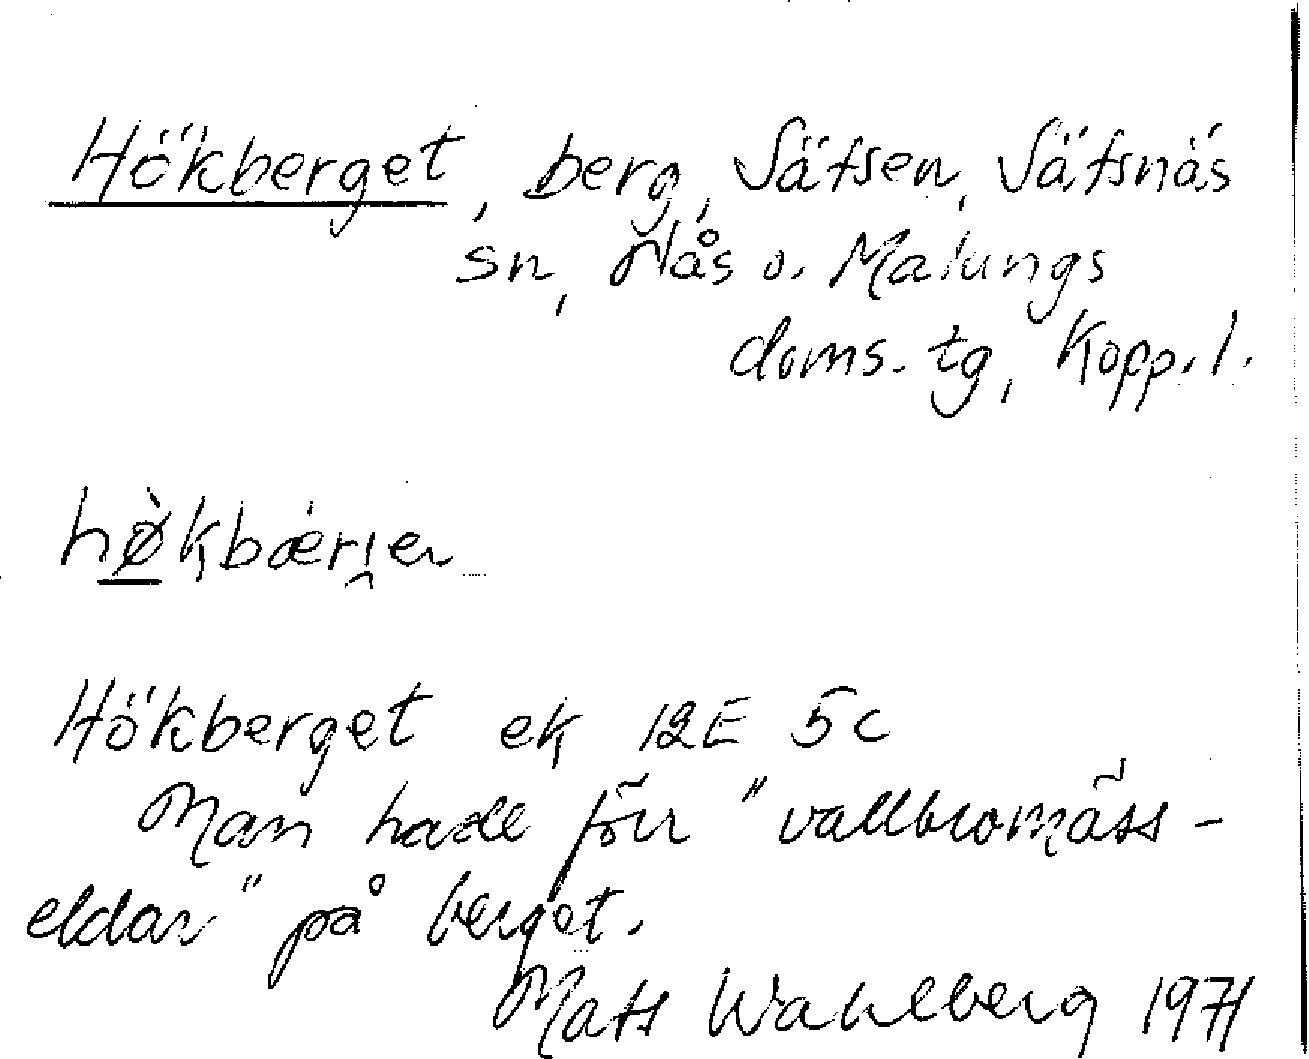 Hökberget, berg, Sätsen, Sätsnäs
sn, Nås o. Malungs
doms. tg, Kopp. l.
hø̀kbæri̯en
Hökberget ek 12E 5c
Man hade förr "vallbromäss-
eldar" på berget.
Mats Wahlberg 1971